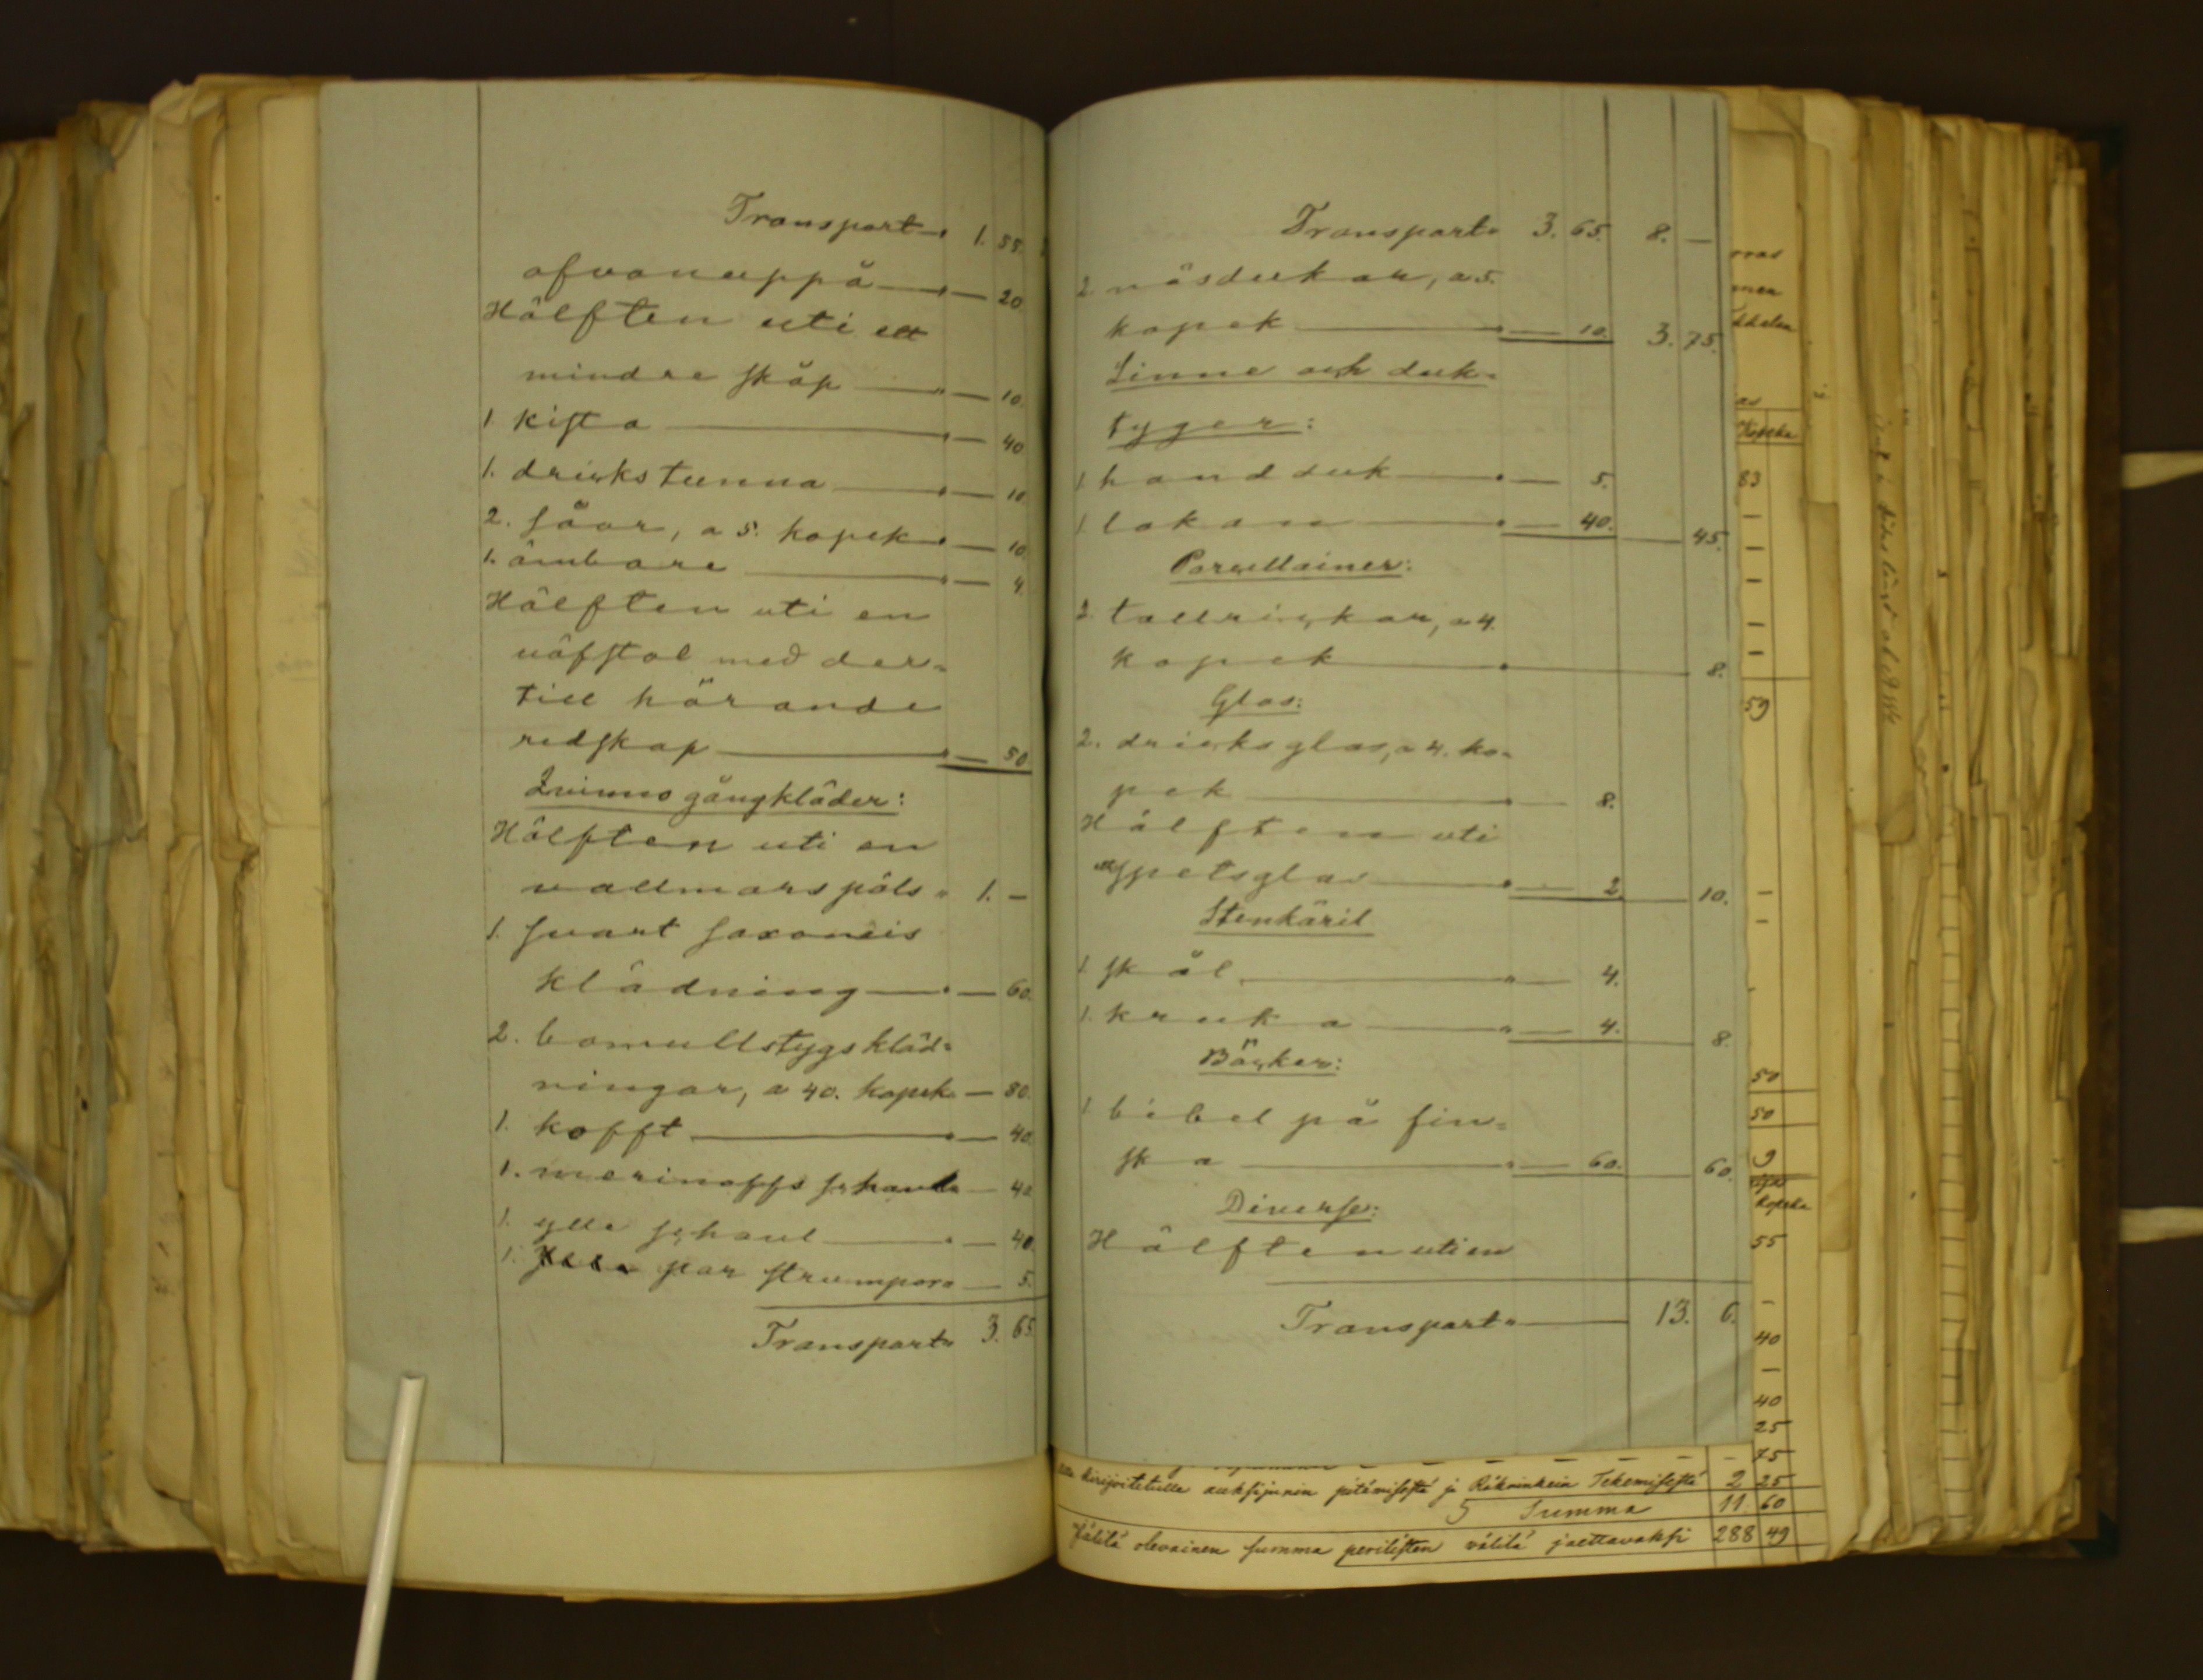 Transport " 1. 55.
ofvanuppå " — 20
Hälften uti ett
mindre skåp " — 10.
1. kista " — 40
1. drickstunna " — 10
2. såar, a 5. kopek " — 10.
1. ämbare " — 4.
Hälften uti en
väfstol med der-
till hörande
redskap " — 50.
Qvinnogångkläder:
Hälften uti en
vallmarspäls " 1. —
1. svart saxoneis
klädning " — 60.
2. bomullstygskläd-
ningar, a 40. kopek " — 80.
1. kofft " — 40.
1. merinoffs schaul " — 40
1. ylle schaul " — 40.
1. par strumpor " — 5.
Transport " 3. 65.
Transport " 3. 65. 8. —
2 näsdukar, a 5.
kopek " — 10. 3. 75.
Linne och duk-
tyger:
1 handduk " — 5.
1. lakan " — 40. — 45.
Porcellainer:
2. tallrickar, a 4.
kopek " — 8.
Glas:
2. dricksglas, a 4. ko-
pek " — 8.
Hälften uti
ett spetsglas " — 2. — 10.
Stenkäril
1. skål " — 4.
1. kruka " — 4. — 8.
Böcker:
1. bibel på fin-
ska " — 60. — 60.
Diverse:
Hälften uti en
Transport " — 13. 6.
Kopeka
83
59
50
50
9
Kopeka
55
40
40
25
75
kirjoitetulle auksijunin pitämisestä ja Räkninkein Tekemisestä 2 25
Summa 11 60
Jälilä olevainen summa perilisten välilä jaettavaksi 288 49